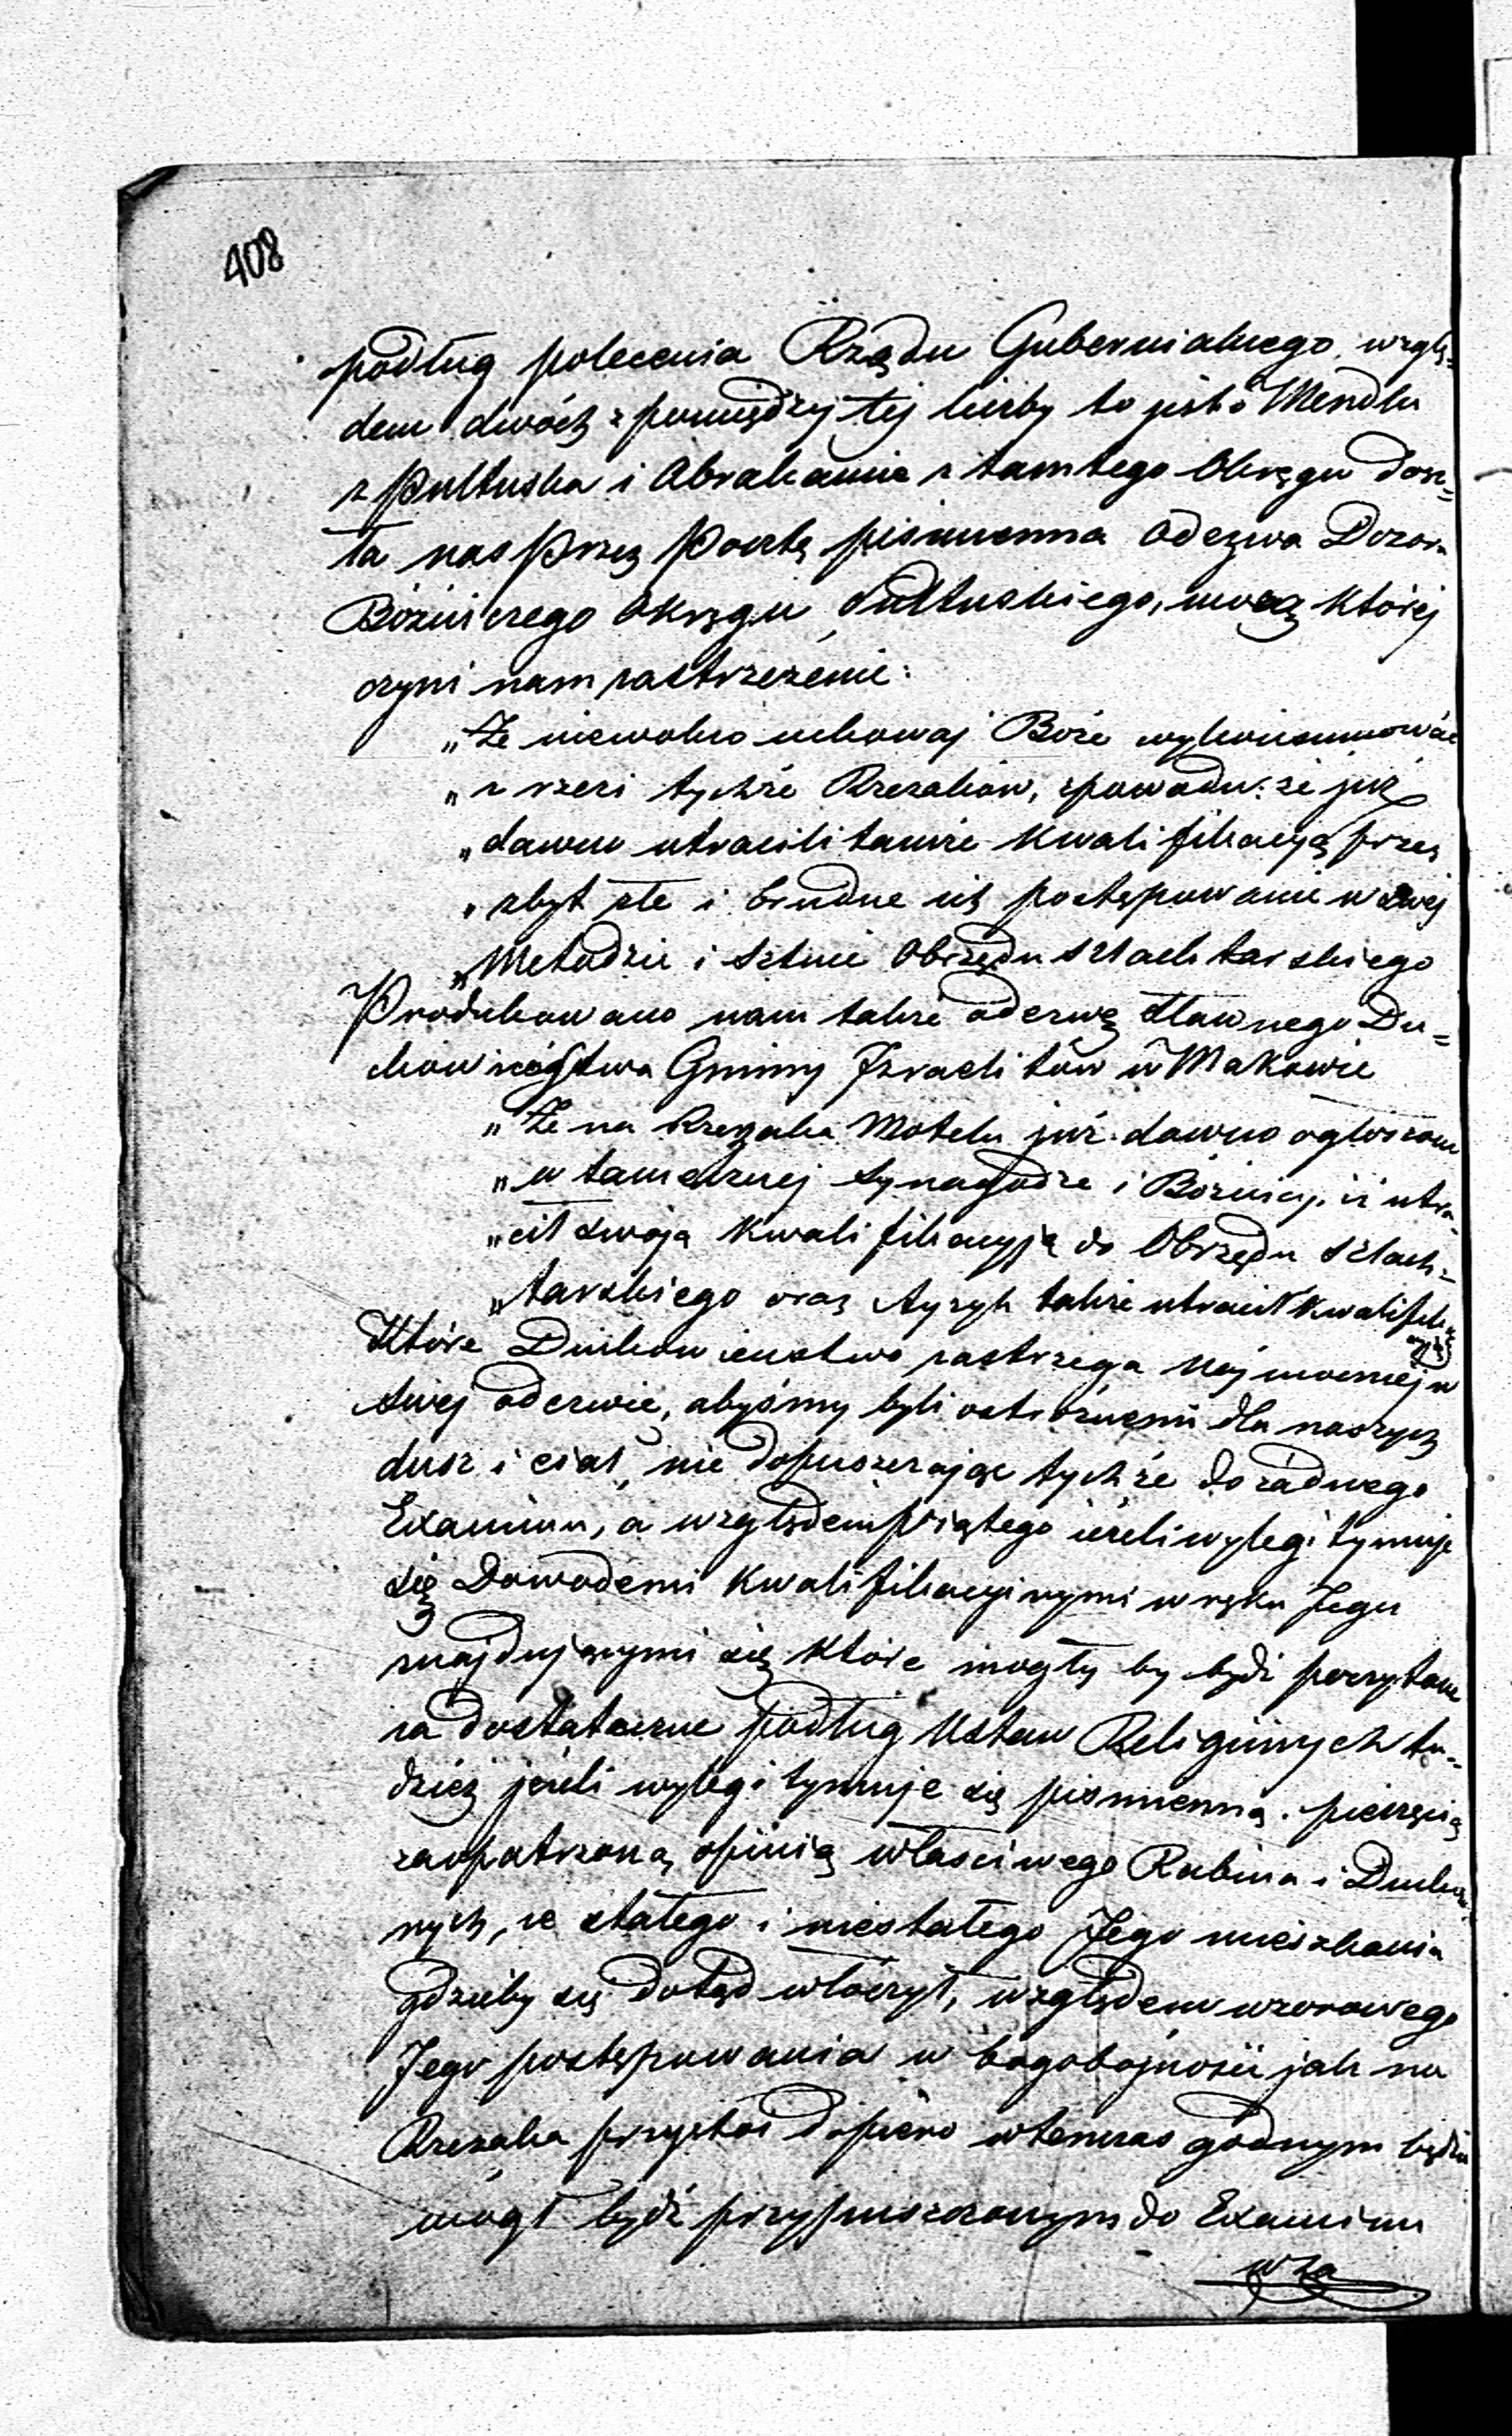 408
podług polecenia Rządu Gubernialnego, wzglę=
dem dwóch z pomiędzy tej liczby to jest o Mendlu
z Pułtuska i Abrahamie z tamtego Okręgu dosz=
ła nas Przez Pocztę pismienna Odezwa Dozoru
Bóżniczego Okręgu Pułtuskiego, mocą której
czyni nam zastrzeżenie:
„Że niewolno uchowaj Boże wykonsummować
„z rzezi tychże Rzezaków, z powodu: że już
„dawno utracili tamże Kwalifikacyą przez
„zbyt złe i brudne ich postępowanie w swej
„Metodzie i Sztuce Obrzędu Szlachtarskiego
Produkowano nam także odezwę Sławnego Du=
chowieństwa Gminy Izraelitów w Makowie
„Że na Rzezaka Motelu już dawno ogłoszono
„w tamecznej Synagodze i Bóżnicy, iż utra-
„cił swoją Kwalifikacyją do Obrzędu Szlach=
„tarskiego oraz Ayzyk także utracił Kwalifika
cyą
Które Duchowieństwo zastrzega Najmocniej w
swej odezwie, abyśmy byli ostróżnemi dla naszych
dusz i ciał, nie dopuszczając tychże do żadnego
Examinu, a względem piątego jeżeli wylegitymuje
się Dowodemi Kwalifikacyjnymi w ręku Jego
znajdującymi się które mogły by bydź poczytane
za dostateczne podług Ustaw Religijnych tu-
dzież jeżeli wylegitymuje się pismienną. pieczęcią
zaopatrzoną opinią właściwego Rabina i Duchow
nych, ze stałego i niestałego Jego mieszkania
gdzieby się dotąd włóczył, względem wzorowego
Jego postępowania w bogobojności jak na
Rzezaka przystoi dopiero wtenczas godnym będzie
mógł bydź przypuszczonym do Examinu
wza